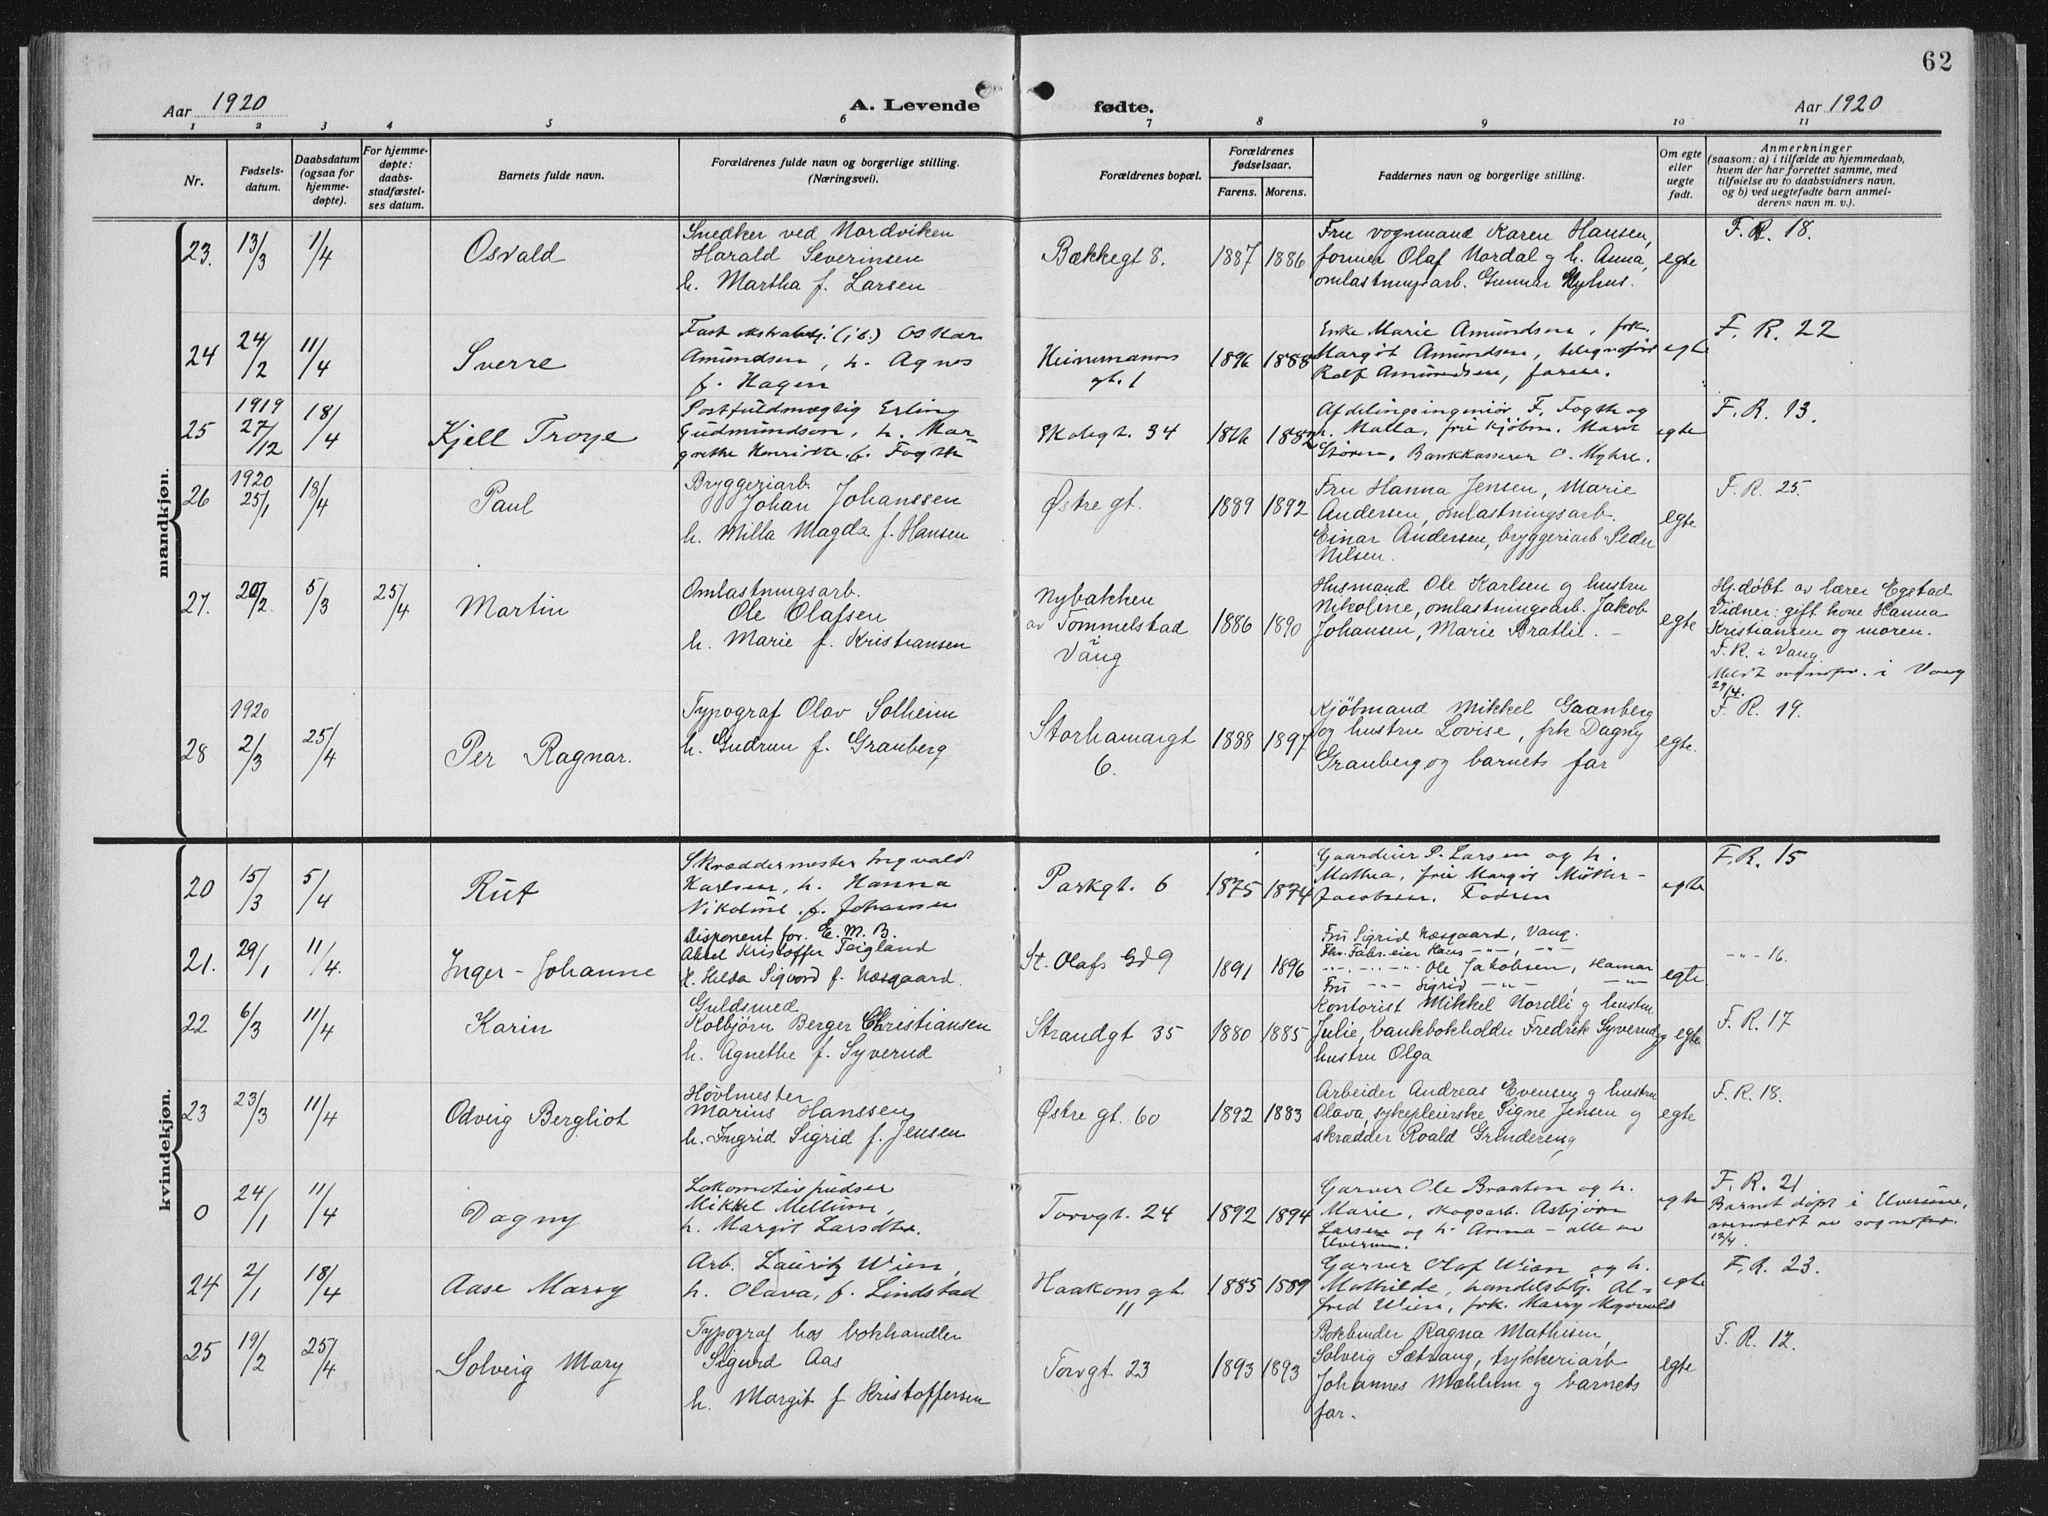 62
Aar 1920
A. Levende fødte.
Aar 1920
1 2 3 4 5 6 7 8 9 10 11
Nr.
Fødsels-
datum.
Daabsdatum
(ogsaa for
hjemme-
døpte).
For hjemme-
døpte:
daabs-
stadfæstel-
ses datum.
Barnets fulde navn.
Forældrenes fulde navn og borgerlige stilling.
(Næringsvei).
Forældrenes bopæl.
Forældrenes
fødselsaar.
Farens. Morens.
Faddernes navn og borgerlige stilling.
Om egte
eller
uegte
født.
Anmerkninger
(saasom: a) i tilfælde av hjemmedaab,
hvem der har forrettet samme, med
tilføielse av to daabsvidners navn,
og b) ved uegtefødte barn anmel-
derens navn m. v.).
mandkjøn.
23. 13/3 1/4
Osvald
Snedker ved Nordviken
Harald Severinsen
h. Martha f. Larsen
Bækkegt 8.
1887 1886
Fru vognmand Karen Hansen,
former Olaf Nordal g h. Anna,
omlastningsarb. Gunnar Myhus.
egte
F. R. 18.
24 24/2 11/4
Sverre
Fast Oskar
Amundsen, h. Agnes
f. Hagen
Heinemanns
gt. 1
1896 1888
Enke Marie Amundsen, frk.
Margit Amundsen,
Rolf Amundsen, faren.
egte
F. R. 22
25 1919 27/12 18/4
Kjell Troye
Postfuldmægtig Erling
Gudmundson, h. Mar-
grethe Henriette f. Fogth
Skolegt. 34
1882
Afdelingsingeniør F. Fogth og
h. Malla, Marie
Støren, Bankkasserer O. Myhre.
egte
F. R. 13.
26 1920 25/1 18/4
Paul
Bryggeriarb.
Johan Johanssen
h. Milla Magda f. Hansen
Østre gt.
1889 1892
Fru Hanna Jensen, Marie
Andersen, omlastningsarb.
Einar Andersen, bryggeriarb Peder
Nilsen.
egte
F. R. 25.
27. 20/2 5/3 25/4
Martin
Omlastningsarb.
Ole Olafsen
h. Marie f. Kristiansen
Nybakken
av Tommelstad
i
Vang
1886 1890
Husmand Ole Karlsen g hustru
Nikoline, omlastningsarb. Jakob
Johansen, Marie Bratlie. -
egte
Hj.døbt av lærer Egstad
Vidner: gift kone Hanna
Kristiansen og moren.
F. R. i Vang
Meldt sognepr. i Vang
29/4.
28 1920 2/3 25/4
Per Ragnar.
Typograf Olav Solheim
h. Gudrun f. Granberg
Storhamargt
6.
1888 1897
Kjøbmand Mikkel Gaanberg
og hustru Lovise, frk Dagny
Granberg og barnets far
egte.
F. R. 19.
kvindekjøn.
20 15/3 5/4
Rut
Skræddermester Ingvald
Karlsen, h. Hanna
Nikoline f. Johansen
Parkgt. 6
1875 1874
Gaardeier P. Larsen og h.
Mathea, Margit
Jacobsen.
egte
F. R. 15
21. 29/1 11/4.
Inger-Johanne
Disponent for. E. M. B.
Aksel Kristoffer Teigland
H. Hilda Sigvord f. Næsgaard.
St. Olafs Gd 9
1891 1896
Fru Sigrid Næsgaard, Vang.
Ole Jakobsen, Hamar
Fru -"- Sigrid -"- , -"-
egte
-"- 16.
22 6/3 11/4
Karin
Guldsmed
Kolbjørn Berger Christiansen
h. Agnethe f. Syverud
Strandgt 35
1880 1885
Kontorist Mikkel Nordli g hustru
Julie, bankbokholder Fredrik Syverud g
hustru Olga
egte
F. R. 17
23 23/3 11/4
Odveig Bergliot
Høvlmester
Marius Hanssen
h. Ingrid Sigrid f. Jensen
Østre gt. 60
1892 1883
Arbeider Andreas Evensen g hustru
Olava, sykepleierske Signe Jensen g
skrædder Roald Grindereng
egte
F. R. 18.
0 24/1 11/4
Dagny
Lokomotivpudser
Mikkel Mellum,
h. Margit Larsdtr.
Torvgt. 24
1892 1894
Garver Ole Braaten og h.
Marie, skogsarb. Asbjørn
Larsen og h. Anna - alle av
Elverum.
egte
F. R. 21
Barnet døpt i Elverum,
anmeldt av sognepr.
12/4.
24 2/1 18/4
Aase Marry
Arb. Lauritz Wien,
h. Olava, f. Lindstad
Haakons gt.
11
1885 1889
Garver Olaf Wien og h.
Mathilde, handelsbtj. Al-
fred Wien, frk. Marry Myrvold
egte
F. R. 23.
25 19/2 25/4
Solveig Mary
Typograf hos bokhandler
Sigurd Aas
h. Margit f Kristoffersen
Torvgt 23
1893 1893
Bokbinder Ragna Mathisen,
Solveig Sætrang, trykkeriarb
Johannes Mæhlum g barnets
far.
egte
F. R. 12.